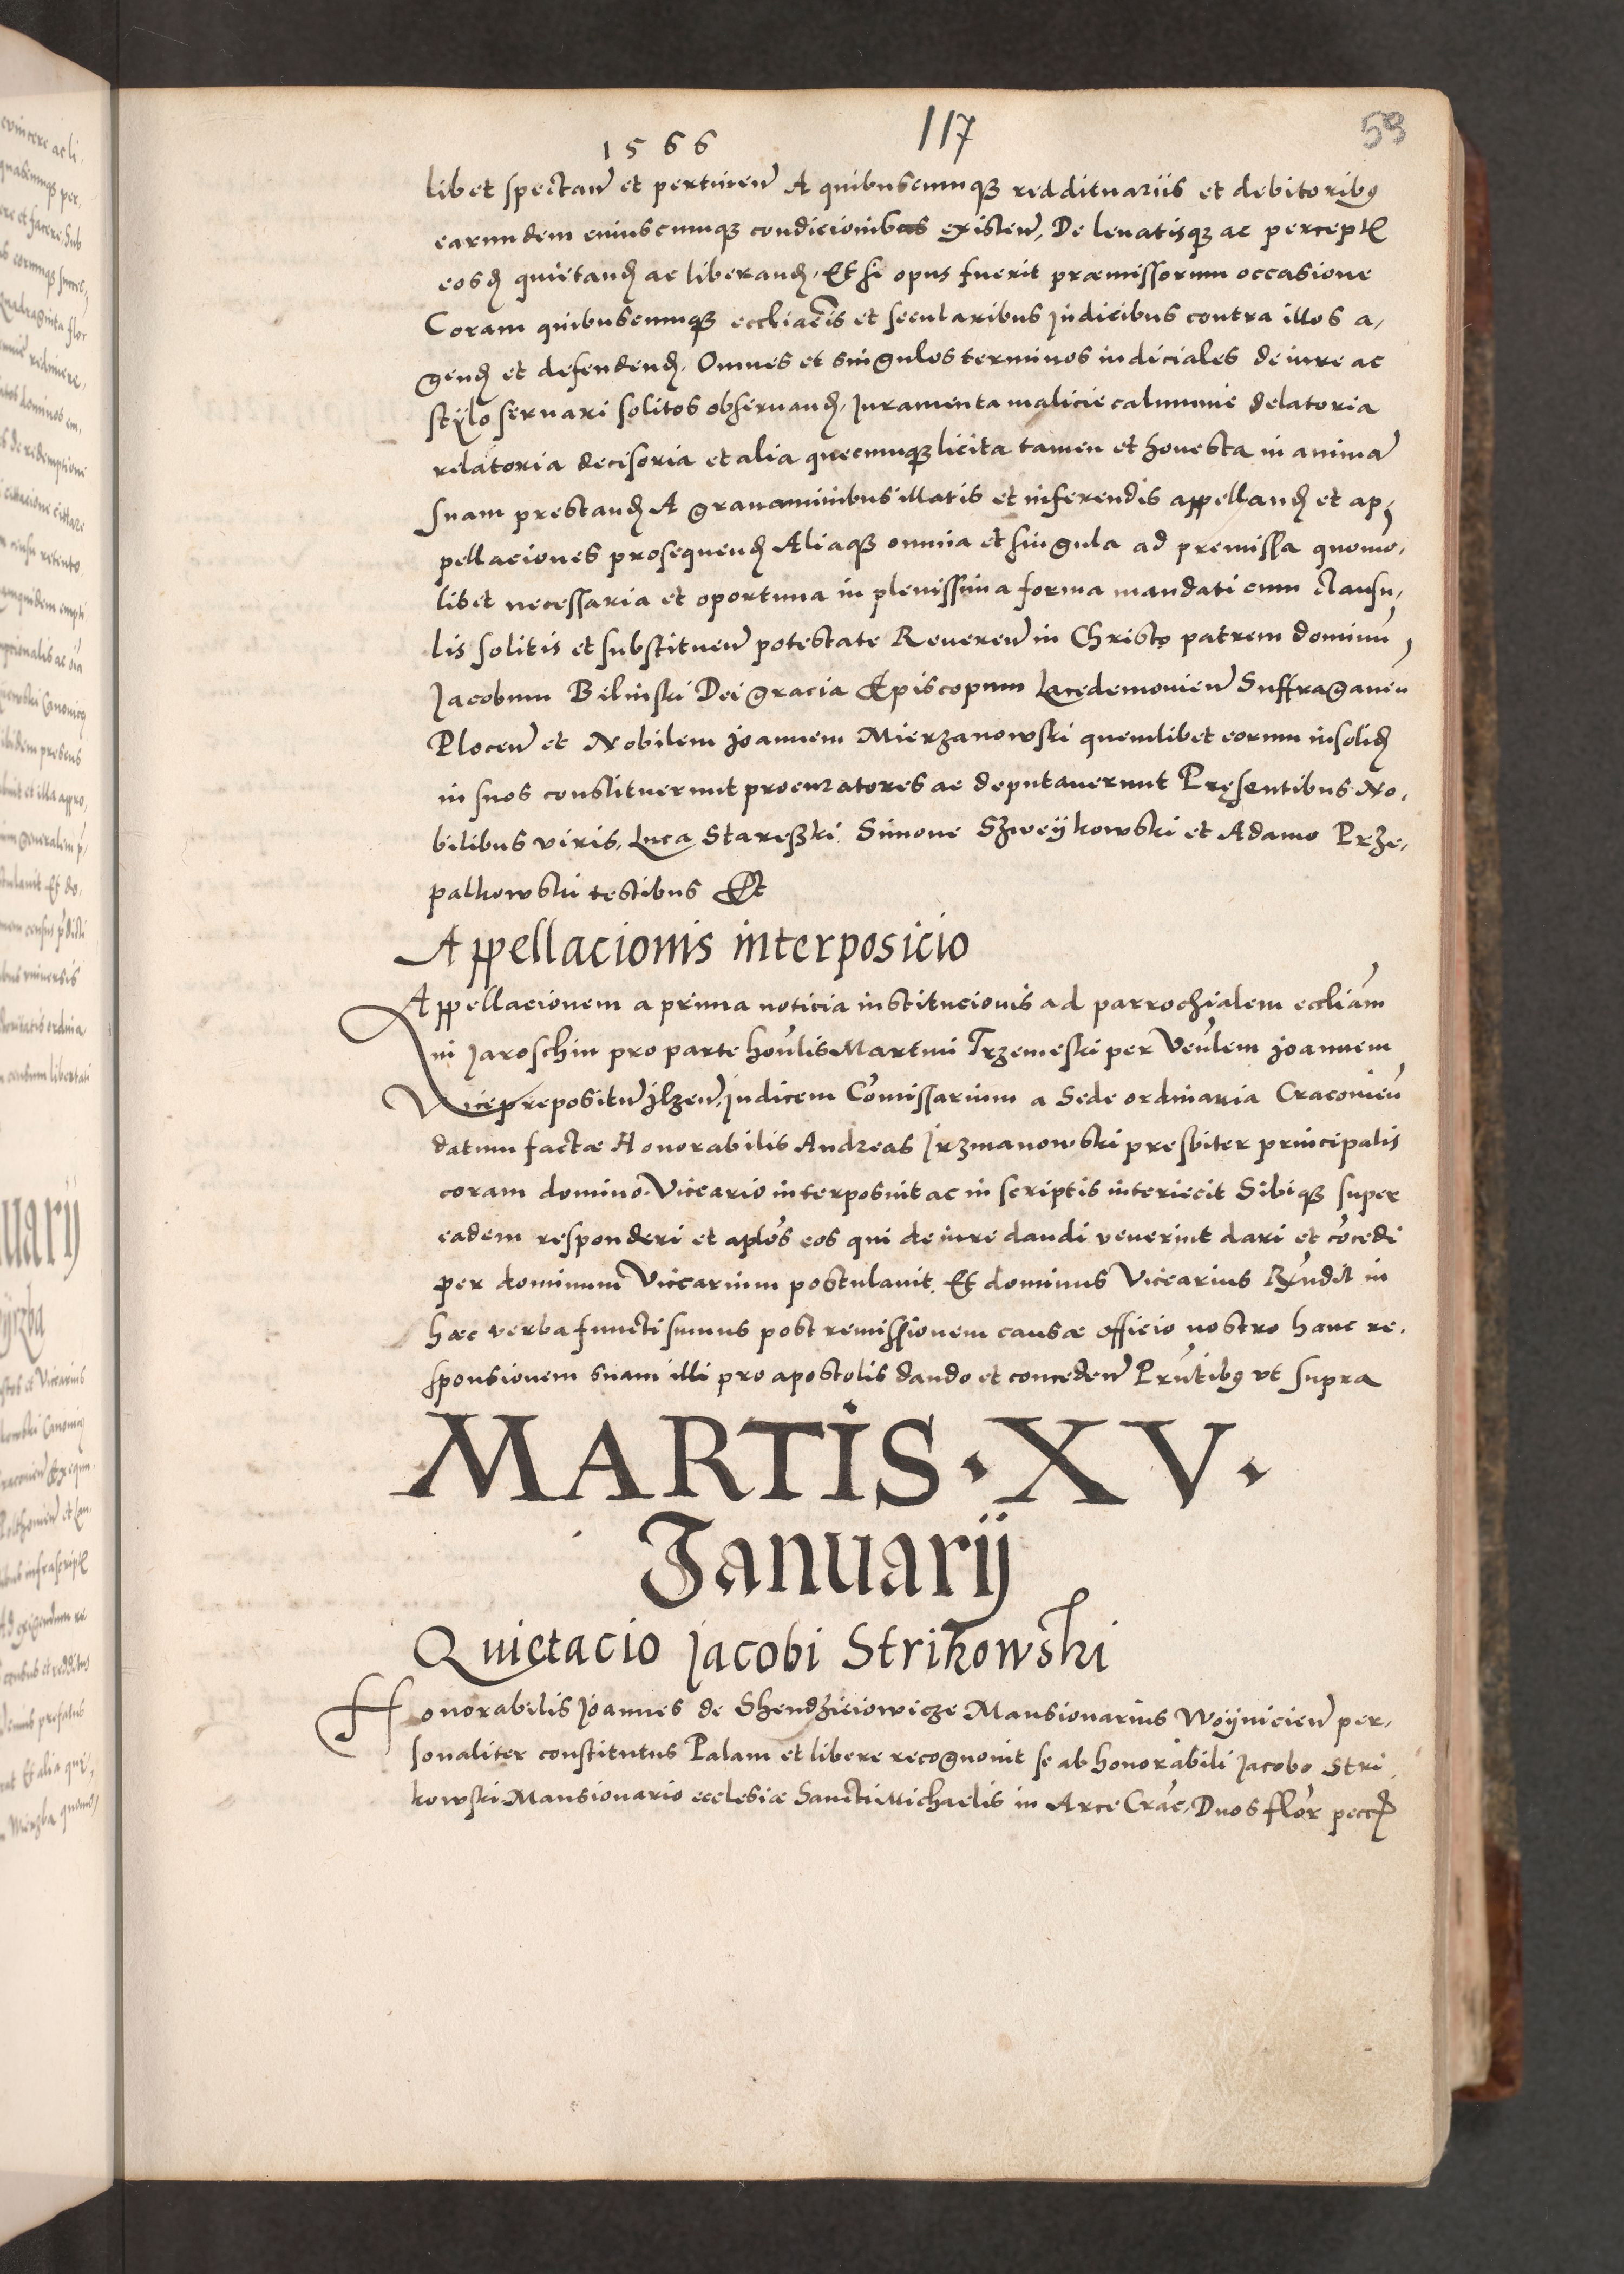 1566 117 59
libet spectan̄ et pertinen̄ A quibuscunqꝫ reddituariis et debitoribꝰ
earundem cuiuscunqꝫ condicionibus existen̄, De leuatisqꝫ ac percept
eosd quietand ac liberand, Et si opus fuerit præmissorum occasione
Coram quibuscunqꝫ eccliãcis et secularibus Judicibus contra illos a,
gend et defendend, Omnes et singulos terminos iudiciales de iure ac
stÿlo seruari solitos obseruand, Juramenta malicie calumnie delatoria
relatoria decisoria et alia quecunqꝫ licita tamen et honesta in animā
suam prestand A grauaminibus illatis et inferendis appelland et ap,
pellaciones prosequend Aliaqꝫ omnia et singula ad premissa quomo,
libet necessaria et oportuna in plenissima forma mandati cum clausu,
lis solitis et substituen̄ potestate Reueren̄ in Christo patrem dominū
Jacobum Bilinski Dei gracia Episcopum Lacedemonien̄ Suffraganeū
Plocen̄ et Nobilem Joannem Mierzanowski quemlibet eorum insolid
in suos constituerunt procuratores ac deputauerunt Pręsentibus No,
bilibus viris, Luca Stareßki Simone Szweÿkowski et Adamo Prze,
palkowski testibus Et
Appellacionis interposicio
Appellacionem a prima noticia institucionis ad parrochialem eccliam
in Jaroschin pro parte honlis Martini Trzemeski per Venlem Joannem
Viceprepositū Jlzen̄, Judicem Comissarium a Sede ordinaria Cracouien̄
datum factæ Honorabilis Andreas Jrzmanowski presbiter principalis
coram domino Viceario interposuit ac in scriptis interiecit Sibiqꝫ super
eadem responderi et aplos eos qui de iure dandi venerint dari et cōcedi
per dominum Vicearium postulauit, Et dominus Vicearius Rn̄dit in
hæc verba functi sumus post remissionem causæ officio nostro hanc re,
sponsionem suam illi pro apostolis dando et conceden̄ Prn̄tibꝰ vt supra
MARTIS · XV ·
Januarij
Quietacio Jacobi Strikowski
Honorabilis Joannes de Shendzieiowicze Mansionarius Woÿnicien̄ per,
sonaliter constitutus Palam et libere recognouit se ab honorabili Jacobo Stri,
kowski Mansionario ecclesiæ Sancti Michaelis in Arce Crac, Duos flor